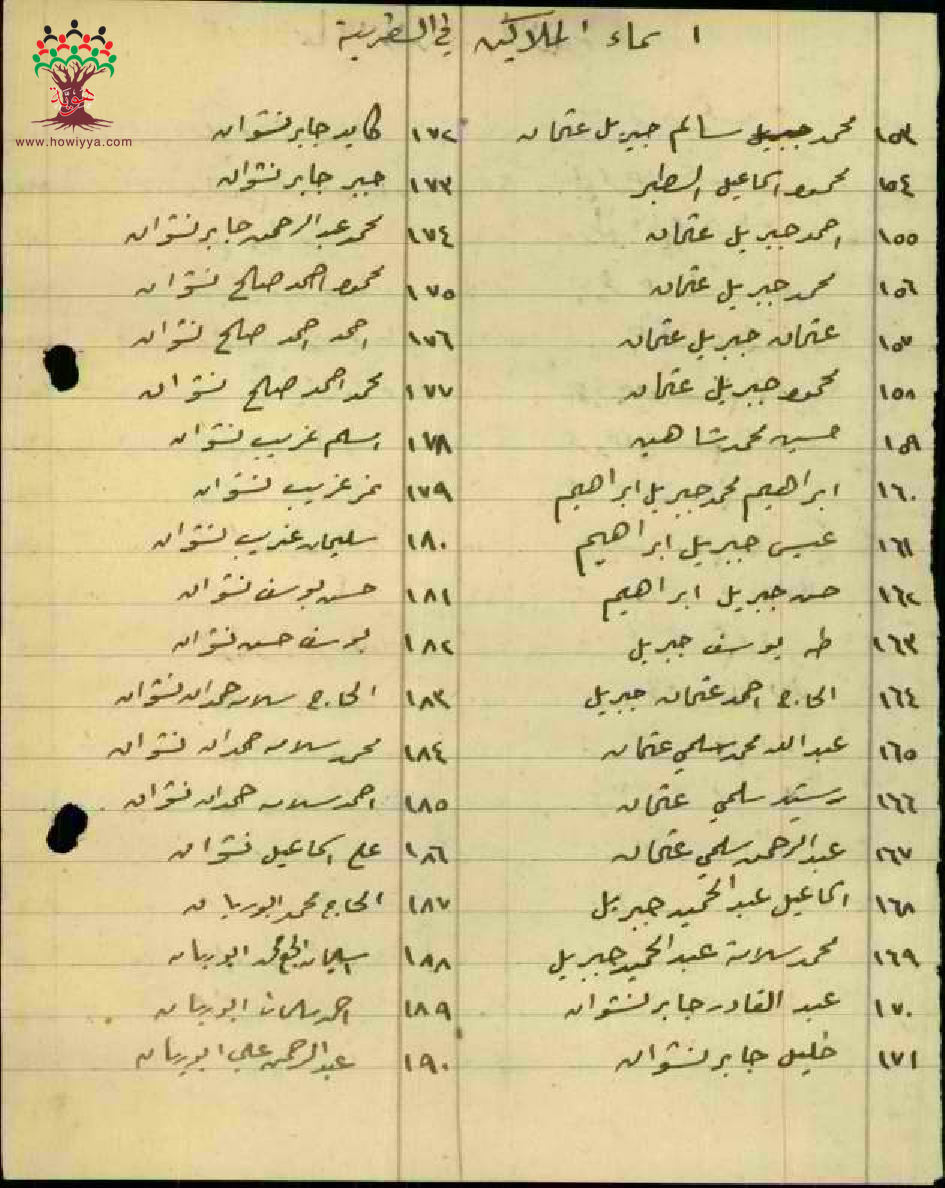 اسماء الملاكين في السطرية
هوية
www.howiyya.com
١٥٣ محمد سالم جبريل عثمان
١٥٤ محمود اسماعيل
١٥٥ احمد جبريل عثمان
١٥٦ محمد جبريل عثمان
١٥٧ عثمان جبريل عثمان
١٥٨ محمود جبريل عثمان
١٥٩ حسين محمد شاهين
١٦٠ ابراهيم محمد جبريل ابراهيم
١٦١ عيسى جبريل ابراهيم
١٦٢ حسن جبريل ابراهيم
١٦٣ طه يوسف جبريل
١٦٤ الحاج احمد عثمان جبريل
١٦٥ عبد الله محمد سلمي عثمان
١٦٦ رشيد سلمي عثمان
١٦٧ عبد الرحمن سلمي عثمان
١٦٨ اسماعيل عبد الحميد جبريل
١٦٩ محمد سلامة عبد الحميد جبريل
١٧٠ عبد القادر جابر نشوان
١٧١ خليل جابر نشوان
١٧٢ كايد جابر نشوان
١٧٣ جبر جابر نشوان
١٧٤ محمد عبد الرحمن جابر نشوان
١٧٥ محمود احمد صالح نشوان
١٧٦ احمد احمد صالح نشوان
١٧٧ محمد احمد صالح نشوان
١٧٨ اسلم غريب نشوان
١٧٩ نمر غريب نشوان
١٨٠ سليمان غريب نشوان
١٨١ حسن يوسف نشوان
١٨٢ يوسف حسن نشوان
١٨٣ الحاج سلامه حمدان نشوان
١٨٤ محمد سلامه حمدان نشوان
١٨٥ احمد سلامه حمدان نشوان
١٨٦ علي اسماعيل نشوان
١٨٧ الحاج محمد ابو ريان
١٨٨ سليمان ابو ريان
١٨٩ احمد سليمان ابو ريان
١٩٠ عبد الرحمن علي ابو ريان